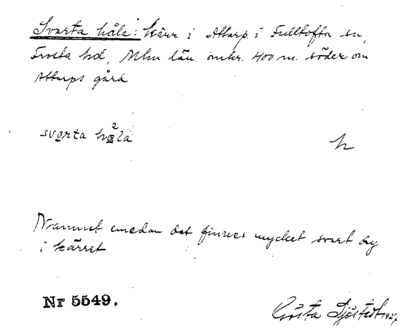 Svarta håla: Kärr i Attarp i Fulltofta sn,
Frosta hd, Mlm län omkr. 400 m. söder om
Attarps gård
svarta håla
Namnet emedan det finnes mycket svart dy
i kärret
Nr 5549.
Gösta Sjöstedt